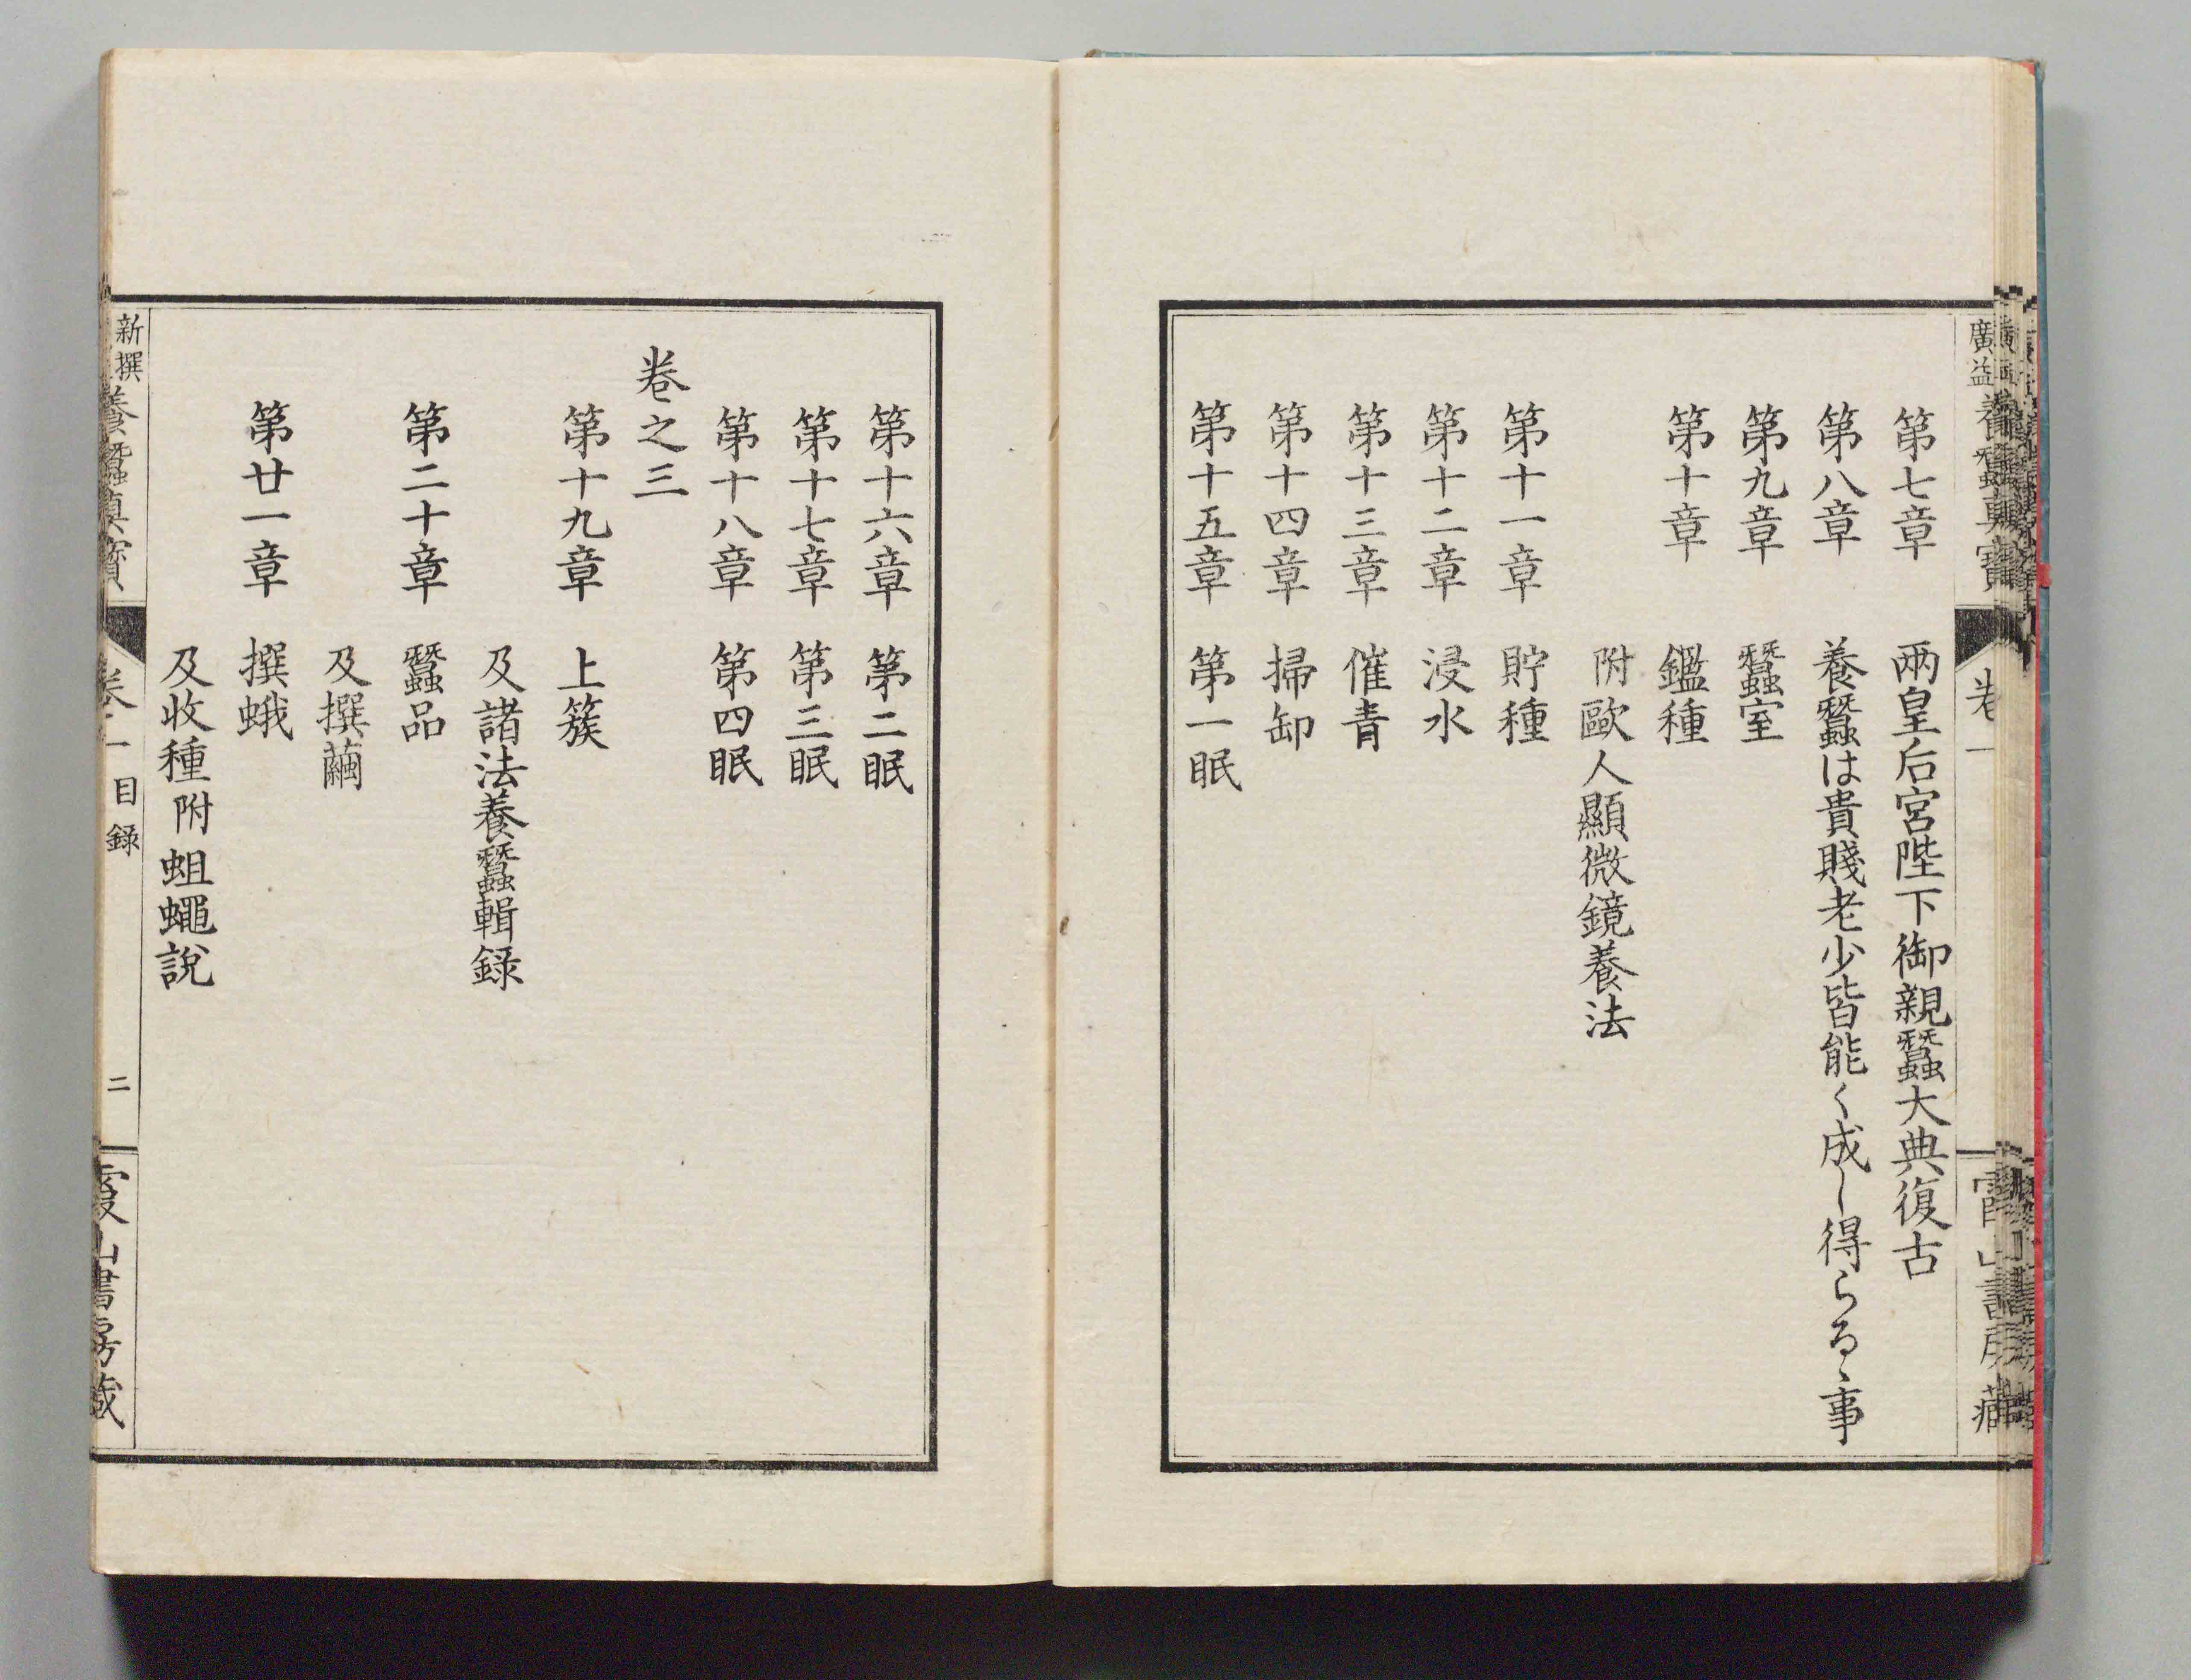 廣益養蠶真寶
卷一
第七章 兩皇后宮陛下御親蠶大典復古
第八章 養蠶は貴賤老少皆能く成し得らるゝ事
第九章 蠶室
第十章 鑑種
附歐人顯微鏡養法
第十一章 貯種
第十二章 浸水
第十三章 催青
第十四章 掃卸
第十五章 第一眠
第十六章 第二眠
第十七章 第三眠
第十八章 第四眠
卷之三
第十九章 上簇
及諸法養蠶輯録
第二十章 蠶品
及撰繭
第廿一章 撰蛾
及收種附蛆蠅說
新撰養蠶真寶
目録
二
霞山書房藏